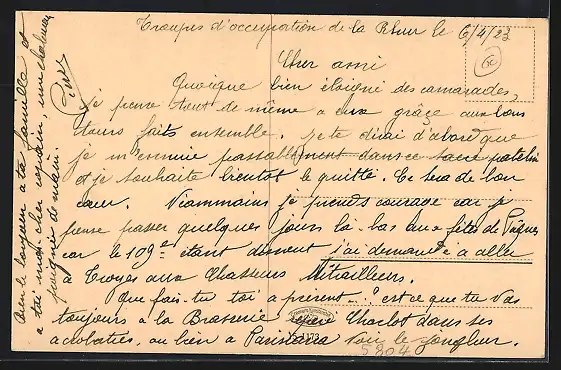 Troupes d'occupation de la Rhur le 6/4/23
Cher ami
Quoique bien éloigné des camarades,
je pense tout de même a eux grâce aux bons
tours faits ensemble. Je te dirai d'abord que
je m'ennuie passablement dans ce sacré patelin
et je souhaite bientot le quitté. Ce sera de bon
cœur. Néammoins je prends courage car je
pense passer quelques jours là-bas aux fêtes de Pâques
car le 109e étant dissout j'ai demandé a aller
a Troyes aux Chasseurs Mitrailleurs.
Que fais-tu toi a présent..." est ce que tu vas
toujours a la Brasserie Charlot dans ses
acrobaties, ou bien a Parisiana voir le jongleur.
Bien le bonjour a ta famille et
a toi mon cher copain, une chaleureuse
poignée de main.
1173
5804